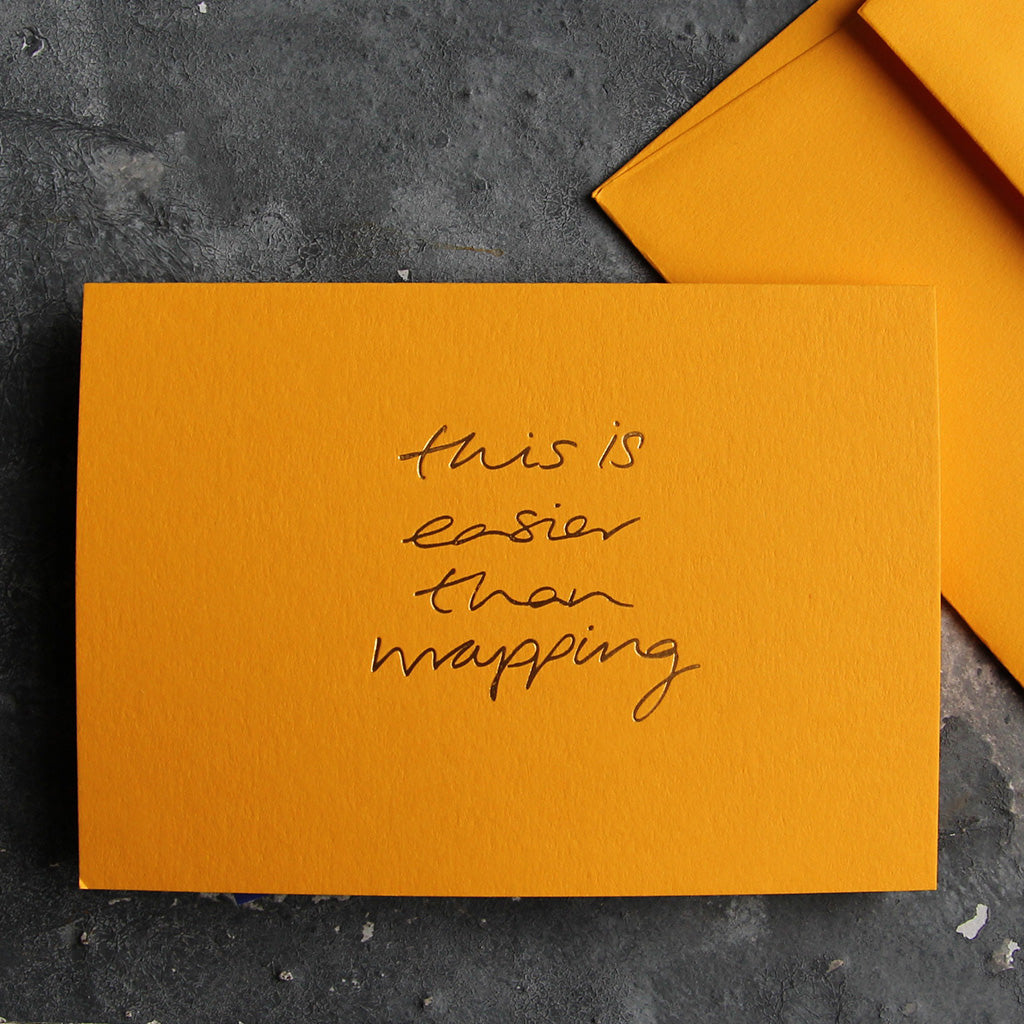 this is
easier
than
wrapping